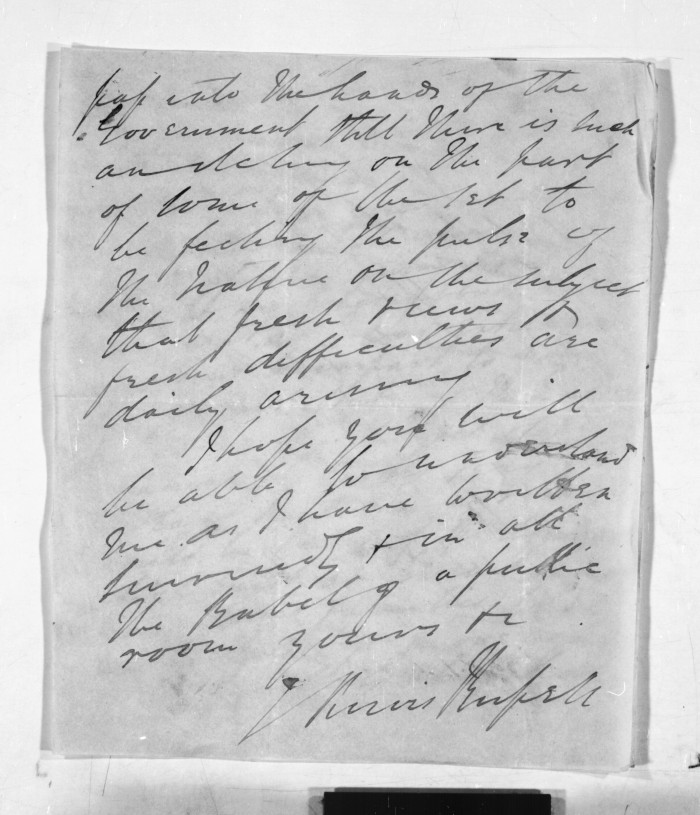 pass into the hands of the
Government still there is such
an itching on the part
of some of the 1st to
be feeling the pulse of
the Native on the subject
that fresh views &
fresh difficulties are
daily arising
I hope you will
be able to understand
me as I have written
hurriedly & in all
the Babel of a public
room yours &c
Purvis Russell